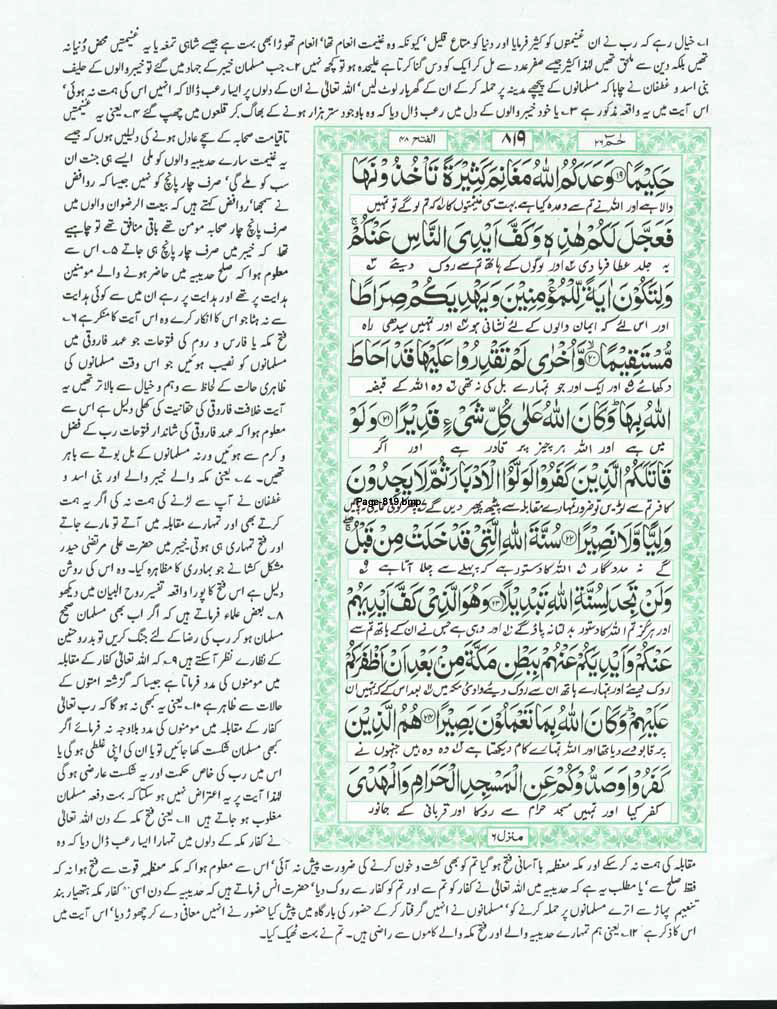 ۱؎ خیال رہے کہ رب نے ان غنیمتوں کو کثیر فرمایا اور دنیا کو متاع قلیل، کیونکہ وہ غنیمت انعام تھا، انعام تھوڑا بھی بہت ہے جیسے شاہی تمغہ یا یہ غنیمتیں محض دُنیا نہ
تھیں بلکہ دین سے ملحق تھیں لہٰذا کثیر جیسے صفر عدد سے مل کر ایک کو دس گنا کرتا ہے علیحدہ ہو تو کچھ نہیں ۲؎ جب مسلمان خیبر کے جہاد میں گئے تو خیبر والوں کے حلیف
بنی اسد و غطفان نے چاہا کہ مسلمانوں کے پیچھے مدینہ پر حملہ کر کے ان کے گھر بار لوٹ لیں، اللہ تعالیٰ نے ان کے دلوں پر ایسا رعب ڈالا کہ انہیں اس کی ہمت نہ ہوئی،
اس آیت میں یہ واقعہ مذکور ہے ۳؎ یا خود خیبر والوں کے دل میں رعب ڈال دیا کہ وہ باوجود ستر ہزار ہونے کے بھاگ کر قلعوں میں چھپ گئے ۴؎ یعنی یہ غنیمتیں
تاقیامت صحابہ کے سچے عادل ہونے کی دلیلیں ہوں کہ جیسے
یہ غنیمت سارے حدیبیہ والوں کو ملی ایسے ہی جنت ان
سب کو ملے گی، صرف چار پانچ کو نہیں جیسا کہ روافض
نے سمجھا، روافض کہتے ہیں کہ بیعت الرضوان والوں میں
صرف پانچ چار صحابہ مومن تھے باقی منافق تھے تو چاہیے
تھا کہ خیبر میں صرف چار پانچ ہی جاتے ۵؎ اس سے
معلوم ہوا کہ صلح حدیبیہ میں حاضر ہونے والے مومنین
ہدایت پر تھے اور ہدایت پر رہے ان میں سے کوئی ہدایت
سے نہ ہٹا جو اس کا انکار کرے وہ اس آیت کا منکر ہے ۶؎
فتح مکہ یا فارس و روم کی فتوحات جو عہد فاروقی میں
مسلمانوں کو نصیب ہوئیں جو اس وقت مسلمانوں کی
ظاہری حالت کے لحاظ سے وہم و خیال سے بالاتر تھیں یہ
آیت خلافت فاروقی کی حقانیت کی کھلی دلیل ہے اس سے
معلوم ہوا کہ عہد فاروقی کی شاندار فتوحات رب کے فضل
و کرم سے ہوئیں ورنہ مسلمانوں کے بل بوتے سے باہر
تھیں۔ ۷؎ یعنی مکہ والے خیبر والے اور بنی اسد و
غطفان نے آپ سے لڑنے کی ہمت نہ کی اگر یہ ہمت
کرتے بھی اور تمہارے مقابلہ میں آتے تو مارے جاتے
اور فتح تمہاری ہی ہوتی خیبر میں حضرت علی مرتضیٰ حیدر
مشکل کشا نے جو بہادری کا مظاہرہ کیا۔ وہ اس کی روشن
دلیل ہے اس فتح کا پورا واقعہ تفسیر روح البیان میں دیکھو
۸؎ بعض علماء فرماتے ہیں کہ اگر اب بھی مسلمان صحیح
مسلمان ہو کر رب کی رضا کے لئے جنگ کریں تو بدر و حنین
کے نظارے نظر آ سکتے ہیں ۹؎ کہ اللہ تعالیٰ کفار کے مقابلہ
میں مومنوں کی مدد فرماتا ہے جیسا کہ گزشتہ امتوں کے
حالات سے ظاہر ہے ۱۰؎ یعنی یہ کبھی نہ ہو گا کہ رب تعالیٰ
کفار کے مقابلہ میں مومنوں کی مدد بلاوجہ نہ فرمائے اگر
کبھی مسلمان شکست کھا جائیں تو یا ان کی اپنی غلطی ہو گی یا
اس میں رب کی خاص حکمت اور یہ شکست عارضی ہو گی
لہٰذا آیت پر یہ اعتراض نہیں ہو سکتا کہ بہت دفعہ مسلمان
مغلوب ہو جاتے ہیں ۱۱؎ یعنی فتح مکہ کے دن اللہ تعالیٰ
نے کفار مکہ کے دلوں میں تمہارا ایسا رعب ڈال دیا کہ وہ
حٰمٓ ۲۶ ۸۱۹ الفتح ۴۸
حَكِیْمًا ۱۹ وَعَدَكُمُ اللّٰهُ مَغَانِمَ كَثِیْرَةً تَاْخُذُوْنَهَا
والا ہے اور اللہ نے تم سے وعدہ کیا ہے بہت سی غنیمتوں کا کہ تم لو گے تو تمہیں
فَعَجَّلَ لَكُمْ هٰذِهٖ وَ كَفَّ اَیْدِیَ النَّاسِ عَنْكُمْ
یہ جلد عطا فرما دی اور لوگوں کے ہاتھ تم سے روک دیئے
وَ لِتَكُوْنَ اٰیَةً لِّلْمُؤْمِنِیْنَ وَ یَهْدِیَكُمْ صِرَاطًا
اور اس لئے کہ ایمان والوں کے لئے نشانی ہو اور تمہیں سیدھی راہ
مُّسْتَقِیْمًا ۲۰ وَّ اُخْرٰى لَمْ تَقْدِرُوْا عَلَیْهَا قَدْ اَحَاطَ
دکھائے اور ایک اور جو تمہارے بل کی نہ تھی وہ اللہ کے قبضہ
اللّٰهُ بِهَا وَ كَانَ اللّٰهُ عَلٰى كُلِّ شَیْءٍ قَدِیْرًا ۲۱ وَ لَوْ
میں ہے اور اللہ ہر چیز پر قادر ہے اور اگر
قَاتَلَكُمُ الَّذِیْنَ كَفَرُوْا لَوَلَّوُا الْاَدْبَارَ ثُمَّ لَا یَجِدُوْنَ
کافر تم سے لڑیں تو ضرور تمہارے مقابلہ سے پیٹھ پھیر دیں گے
Page-819.bmp
وَلِیًّا وَّ لَا نَصِیْرًا ۲۲ سُنَّةَ اللّٰهِ الَّتِیْ قَدْ خَلَتْ مِنْ قَبْلُ
گے نہ مددگار اللہ کا دستور ہے کہ پہلے سے چلا آتا ہے
وَ لَنْ تَجِدَ لِسُنَّةِ اللّٰهِ تَبْدِیْلًا ۲۳ وَ هُوَ الَّذِیْ كَفَّ اَیْدِیَهُمْ
اور ہرگز تم اللہ کا دستور بدلتا نہ پاؤ گے اور وہی ہے جس نے ان کے ہاتھ تم سے
عَنْكُمْ وَ اَیْدِیَكُمْ عَنْهُمْ بِبَطْنِ مَكَّةَ مِنْۢ بَعْدِ اَنْ اَظْفَرَكُمْ
روک دیئے اور تمہارے ہاتھ ان سے روک دیئے وادی مکہ میں بعد اس کے کہ تمہیں ان
عَلَیْهِمْ وَ كَانَ اللّٰهُ بِمَا تَعْمَلُوْنَ بَصِیْرًا ۲۴ هُمُ الَّذِیْنَ
پر قابو دے دیا تھا اور اللہ تمہارے کام دیکھتا ہے وہ وہ ہیں جنہوں نے
كَفَرُوْا وَ صَدُّوْكُمْ عَنِ الْمَسْجِدِ الْحَرَامِ وَ الْهَدْیَ
کفر کیا اور تمہیں مسجد حرام سے روکا اور قربانی کے جانور
منزل ۶
مقابلہ کی ہمت نہ کر سکے اور مکہ معظمہ بآسانی فتح ہو گیا تم کو بھی کشت و خون کرنے کی ضرورت پیش نہ آئی، اس سے معلوم ہوا کہ مکہ معظمہ قوت سے فتح ہوا نہ کہ
فقط صلح سے، یا مطلب یہ ہے کہ حدیبیہ میں اللہ تعالیٰ نے کفار کو تم سے اور تم کو کفار سے روک دیا، حضرت انس فرماتے ہیں کہ حدیبیہ کے دن اسی ۸۰ کفار مکہ ہتھیار بند
تنعیم پہاڑ سے اترے مسلمانوں پر حملہ کرنے کو، مسلمانوں نے انہیں گرفتار کر کے حضور کی بارگاہ میں پیش کیا حضور نے انہیں معافی دے کر چھوڑ دیا، اس آیت میں
اس کا ذکر ہے ۱۲؎ یعنی ہم تمہارے حدیبیہ والے اور فتح مکہ والے کاموں سے راضی ہیں۔ تم نے بہت ٹھیک کیا۔